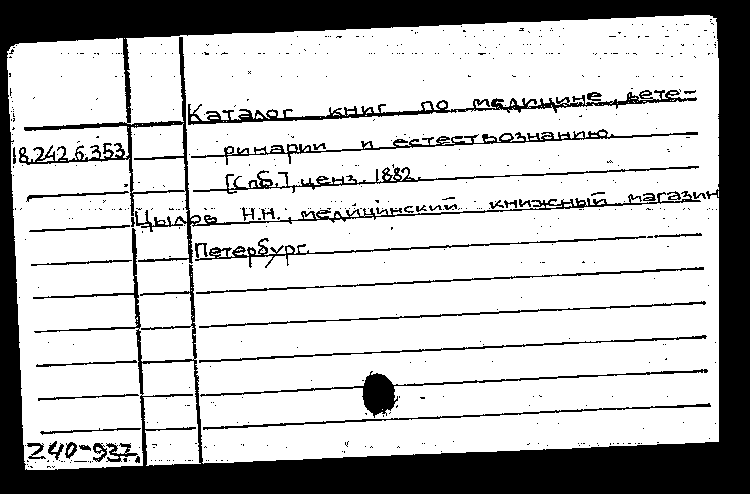 Каталог книг по медицине, вете-
18.242.6.353. ринарии и естествознанию.
[Спб.], ценз. 1882.
Цылов Н.Н., медицинский книжный магазин
Петербург.
240-937.